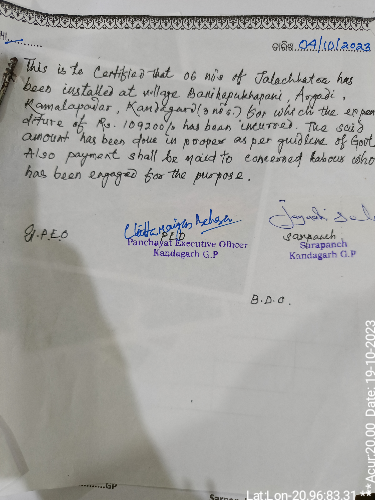 ତାରିଖ 04/10/2023
This is to Certified that 06 no's of Jalachhatra has
been installed at village Banikapukhapani, Argadi,
Kamalapadar, Kandagard (3 no's.) for which the expen
diture of Rs. 109200/- has been incurred. The said
amount has been done in proper as per guidline of Govt
Also payment shall be maid to concerned labour who
has been engaged for the purpose.
G.P.E.O
PEO
Panchayat Executive Officer
Kandagarh G.P
Sarpanch
Sarapanch
Kandagarh G.P
B.D.O.
GP
Lat:Lon-20.96:83.31 ** Acur:20.00 Date: 19-10-2023